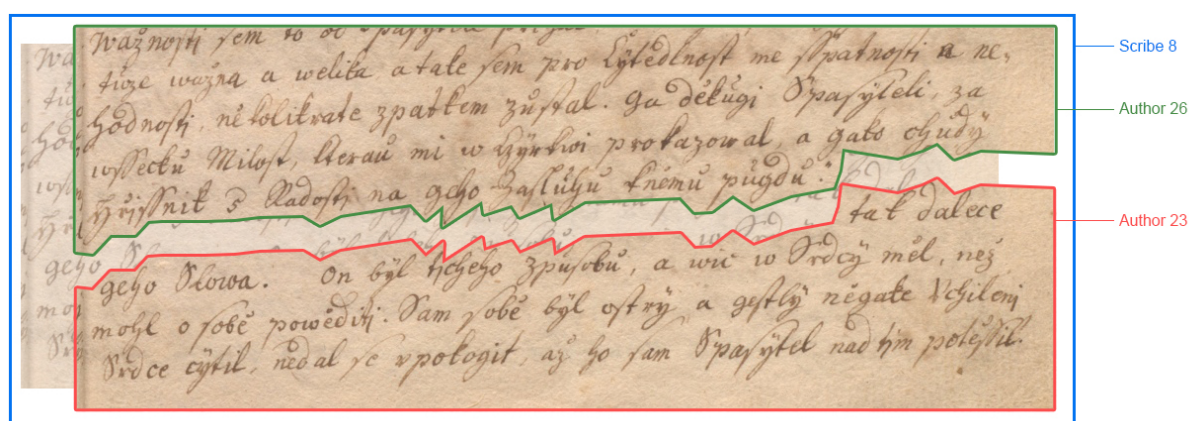 ważnosti sem to od Spasytele
tuze ważna a welika a take sem pro Cytedlnost me sspatnosti a ne,
hodnosti, nėkolikrate zpatkem zůstal. Ga dėkugi Spasyteli, za
wssecku Milost, kterau mi w Cyrkwi prokazowal, a gako chudý
Hrissnik s Radosti na geho Zasluhu knėmu půgdu.
tak dalece
geho Slowa. On býl ticheho způsobu, a wic w Srdcý mėl, než
mohl o sobė powėditi. Sam sobė býl ostrý a gestlý nėgake Vchileni
Srdce cýtil, nedal se vpokogit, až ho sam Spasýtel nad tim potėssil.
Scribe 8
Author 26
Author 23